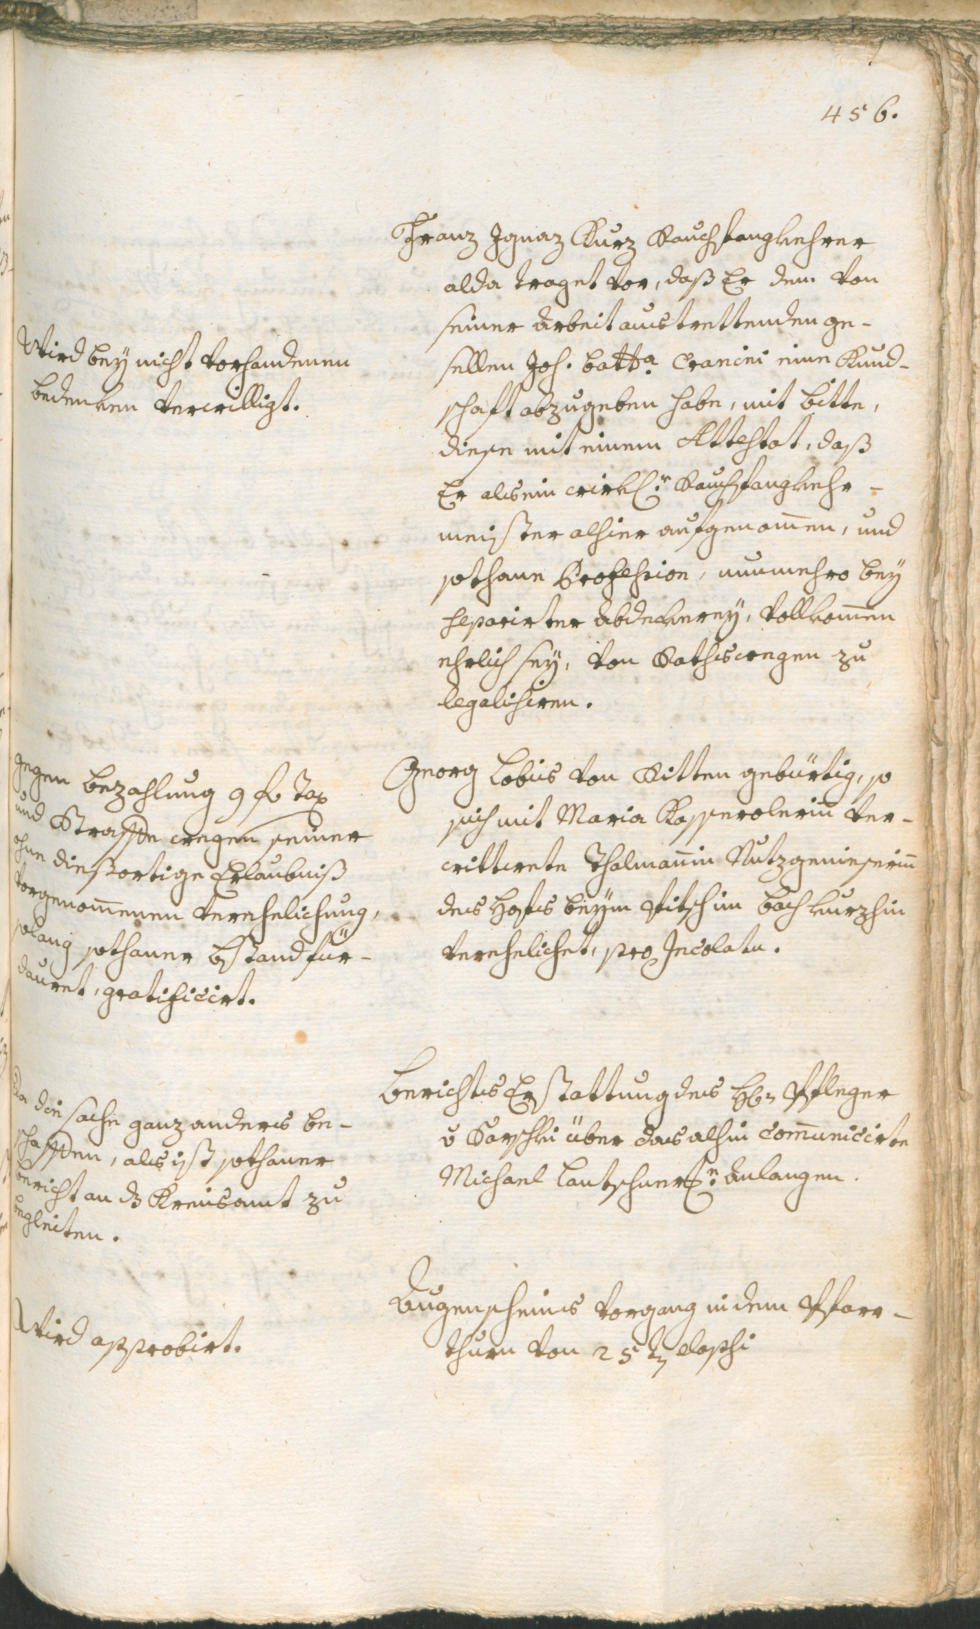 456.
Franz Ignaz Kurz Rauchfangkehrer
alda traget vor, daß Er dem von
seiner Arbeit austrettenden ge-
sellen Joh. batt.a Crancini eine Kund-
schaft abzugeben habe, mit bitte,
diese mit einem Attestat, daß
Er als ein wirkl.r Rauchfangkehr-
meister alhier aufgenom̄en, und
sothane Profession, nunmehro bey
separirter Abdekerey, vollkom̄en
ehrlich sey, von Rathswegen zu
legalisiren.
Wird bey nicht vorhandenen
bedenken verwilligt.
Georg Lobis von Ritten gebürtig, so
sich mit Maria Kasserolerin̄ ver-
wittwete Thalman̄in Nutzgenieserin̄
des Hofs beym Pitsch im bach kurzhin
verehelichet, pro Incolatu.
gegen bezahlung 9 f Tax
und Straffe wegen seiner
ohne diesortige Erlaubniß
vorgenom̄enen verehelichung,
solang sothaner bstand für-
dauret, gratificirt.
berichts Erstattung des Hhn Pfleger
v über das alhin com̄unicirte
Michael Lantschner Anlangen.
Da die sache ganz anders be-
schaffen, als ist sothaner
bericht an dz Kreisamt zu
begleiten.
Augenscheins vorgang in dem Pfarr-
thurn von 25
Wird approbirt.